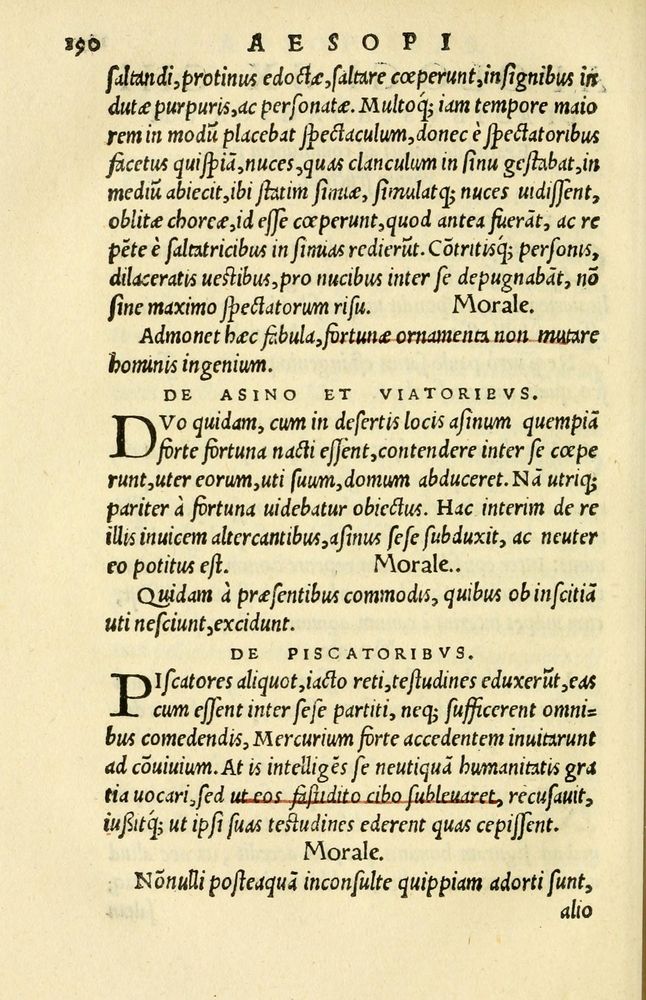 190 AESOPI
saltandi, protinus edoctæ, saltare cœperunt, insignibus in
dutæ purpuris, ac personatæ. Multoq; iam tempore maio
rem in modũ placebat spectaculum, donec è spectatoribus
facetus quispiã, nuces, quas clanculum in sinu gestabat, in
mediũ abiecit, ibi statim simiæ, simulatq; nuces uidissent,
oblitæ choreæ, id esse cœperunt, quod antea fuerãt, ac re
pẽte è saltatricibus in simias redierũt. Cõtritisq́; personis,
dilaceratis uestibus, pro nucibus inter se depugnabãt, nõ
sine maximo spectatorum risu. Morale.
Admonet hæc fabula, fortunæ ornamenta non mutare
hominis ingenium.
DE ASINO ET VIATORIBVS.
DVo quidam, cum in desertis locis asinum quempiã
forte fortuna nacti essent, contendere inter se cœpe
runt, uter eorum, uti suum, domum abduceret. Nã utriq;
pariter à fortuna uidebatur obiectus. Hac interim de re
illis inuicem altercantibus, asinus sese subduxit, ac neuter
eo potitus est. Morale..
Quidam à præsentibus commodis, quibus ob inscitiã
uti nesciunt, excidunt.
DE PISCATORIBVS.
PIscatores aliquot, iacto reti, testudines eduxerũt, eas
cum essent inter sese partiti, neq; sufficerent omni=
bus comedendis, Mercurium forte accedentem inuitarunt
ad cõuiuium. At is intelligẽs se neutiquã humanitatis gra
tia uocari, sed ut eos fastidito cibo subleuaret, recusauit,
iußitq́; ut ipsi suas testudines ederent quas cepissent.
Morale.
Nõnulli posteaquã inconsulte quippiam adorti sunt,
alio